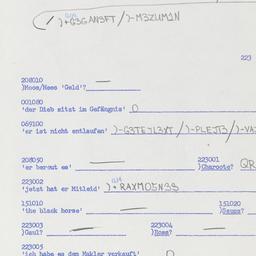 )+G3GAN3FT/)-M3ZUM1N
223
208010
)Moos/Mees 'Geld'?
001080
'der Dieb sitzt im Gefängnis' O
069100
'er ist nicht entlaufen' )-G3TE7L3XT/)-PLEJT3/)-VA
208050 223001
'er beraut es' )Charoete? QR
223002
'jetzt hat er Mitleid' )+RAXM05N3S
151010 151020
'the black horse' )Sauss?
223003 223004
)Gaul? )Ross?
223005
'ich habe es dem Makler verkauft'